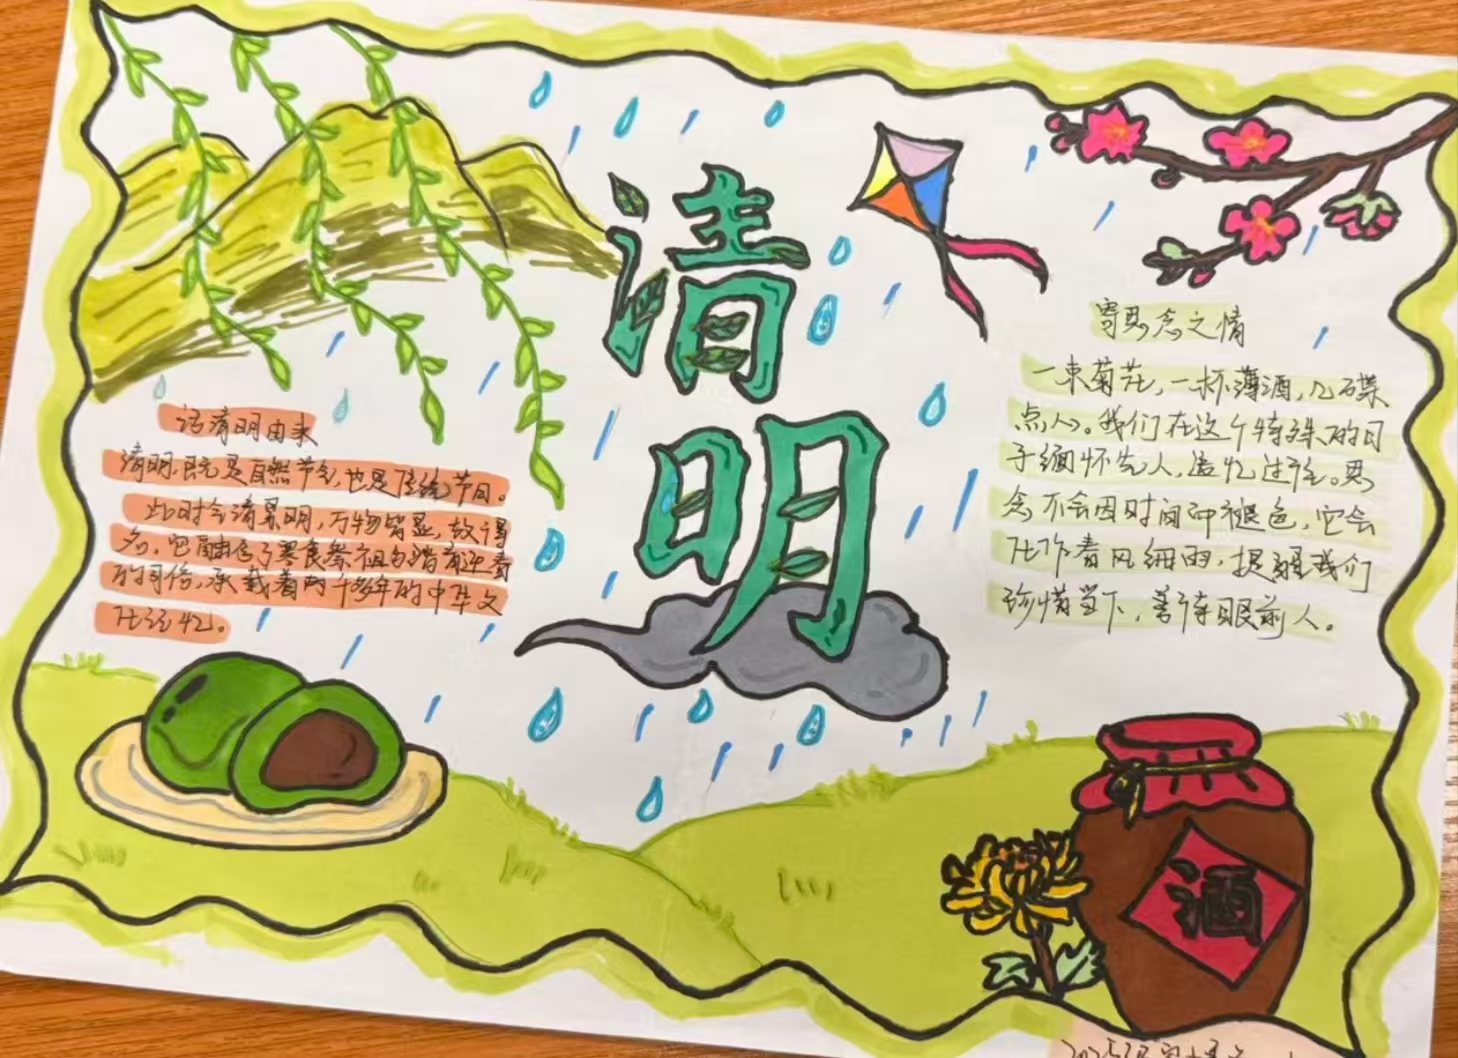 清
明
话清明由来
清明既是自然节气,也是传统节日。
此时气清景明,万物皆显,故得
名。它融合了寒食祭祖与踏青迎春
的习俗,承载着两千多年的中华文
化记忆。
寄思念之情
一束菊花,一杯薄酒,几碟
点心。我们在这个特殊的日
子缅怀先人,追忆过往。思
念不会因时间而褪色,它会
化作春风细雨,提醒我们
珍惜当下,善待眼前人。
酒